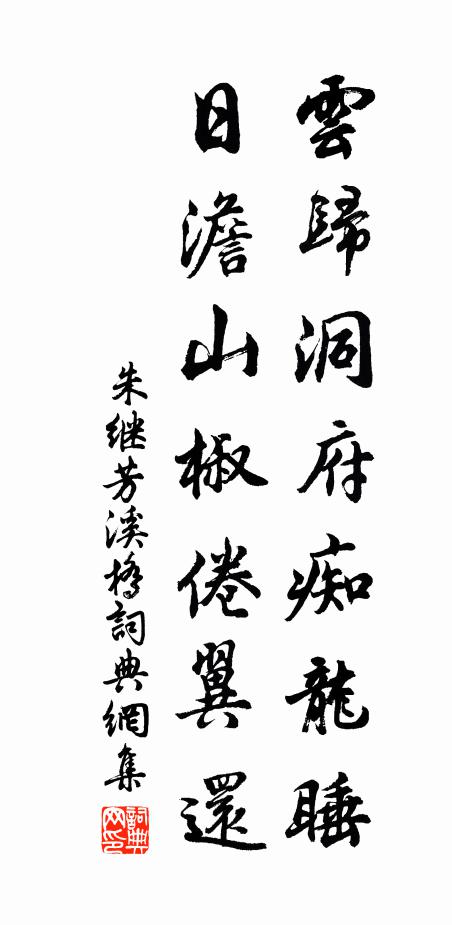 雲歸洞府痴龍睡
日澹山椒倦翼還
朱继芳溪橋詞典網集
詞典網印